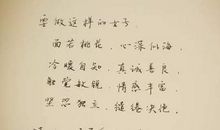 要做这样的女子
面若桃花、心深似海
冷暖自知、真诚善良
触觉敏锐、情感丰富
坚忍独立、缱绻决绝